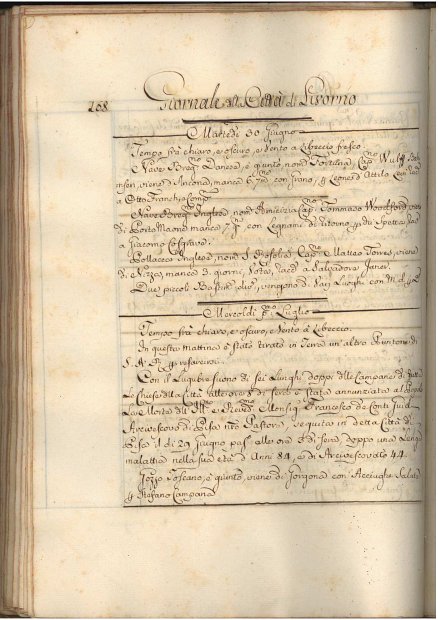 268. Giornale della Città di Livorno
Martedi 30 Giugno
Tempo frà chiaro, e oscuro, e Vento a Libeccio fresco.
Nave Danese, è giunto, nomª Fortuna, Cap. Wulff
viene d'Ancona, manca con Grano, p Leone d'Attilo
a Otto Franchi e Comp.
Nave Inglese nomª Amicizia Cap. Tommaso Woodford, viene
di Porto Maone manca con Legnami di ritorno, p
a Giacomo
Pollacca Inglese, nomª S. Rosolia Cap. Matteo Torres, viene
di Nizza, manca 3. giorni, Vota, racc. a Salvadore Janer.
Due piccoli Bastim. vengono di Vari Luoghi con
Mercoledi p.mo Luglio
Tempo frà chiaro, e oscuro, e Vento a Libeccio.
In questa mattina è stato tirato in Terra un' altro Puntone di
S. A. R. p resarcirsi.
Con il Lugubre suono di sei Lunghi doppi delle Campane di Tutte
Le Chiese della Città alle ore 8 di sera è stata annunziata al Popolo
La Morte dell' Ill. e Rev. Monsig. Francesco de Conti Guidi
Arcivescovo di Pisa nro Pastore, seguita in detta Città di
Pisa il dì 29 Giugno pas. alle ore di Sera, doppo una Lunga
malattia nella sua età d' Anni 84, e di Arcivescovato 44.
Gozzo Toscano, è giunto, viene di Gorgona con Acciughe Salate
p Stefano Campana